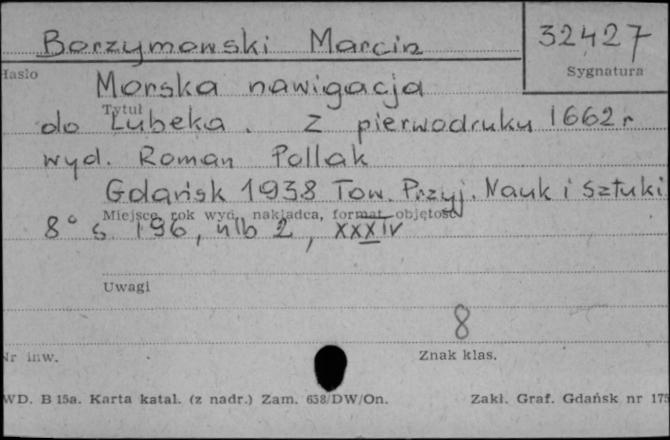 Borzymowski Marcin
32427
Hasło
Sygnatura
Morska nawigacja
Tytuł
do Lubeka. Z pierwodruku 1662 r
wyd. Roman Pollak
Gdańsk 1938 Tow. Przyj. Nauk i Sztuki
Miejsce, rok wyd., nakładca, format, objętość
8° s. 196, nlb 2, XXXIV
Uwagi
8
Nr inw.
Znak klas.
WD. B 15a. Karta katal. (z nadr.) Zam. 638/DW/On.
Zakł. Graf. Gdańsk nr 175